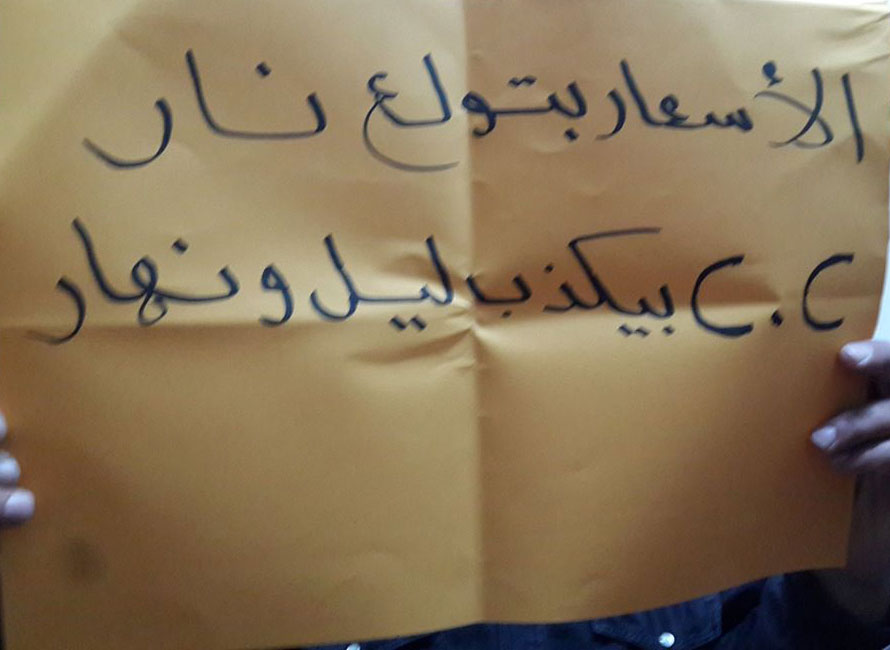 الأسعار بتولع نار
C.C بيكذب ليل ونهار